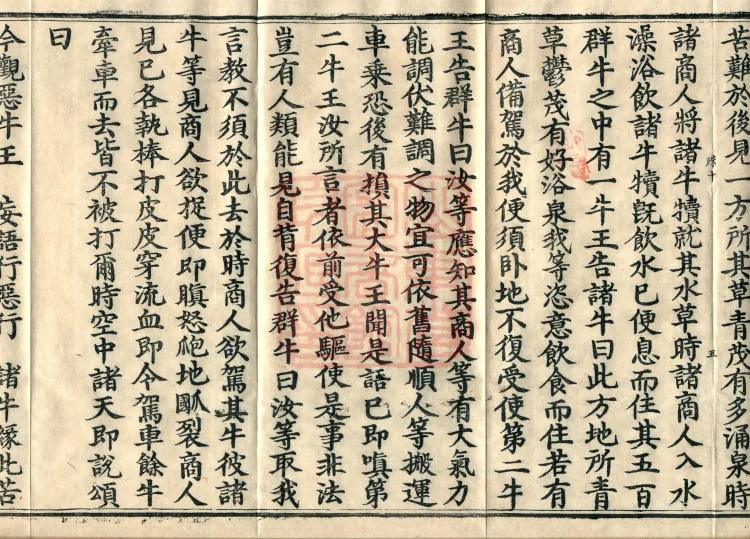 苦難於後見一方所其草青茂有多涌泉時
諸商人將諸牛犢就其水草時諸商人入水
澡浴飲諸牛犢旣飲水已便息而住其五百
群牛之中有一牛王告諸牛曰此方地所青
草鬱茂有好浴泉我等恣意飲食而住若有
商人備駕於我便須卧地不復受使第二牛
王告群牛曰汝等應知其商人等有大氣力
能調伏難調之物宜可依舊隨順人等搬運
車乘恐後有損其大牛王聞是語已即嗔第
二牛王汝所言者依前受他驅使是事非法
豈有人類能見自背復告群牛曰汝等取我
言教不須於此去於時商人欲駕其牛彼諸
牛等見商人欲捉便即瞋怒爮地㽃裂商人
見已各執棒打皮皮穿流血即令駕車餘牛
牽車而去皆不被打爾時空中諸天即說頌
曰
今觀惡牛王 妄語行惡行 諸牛緣此苦